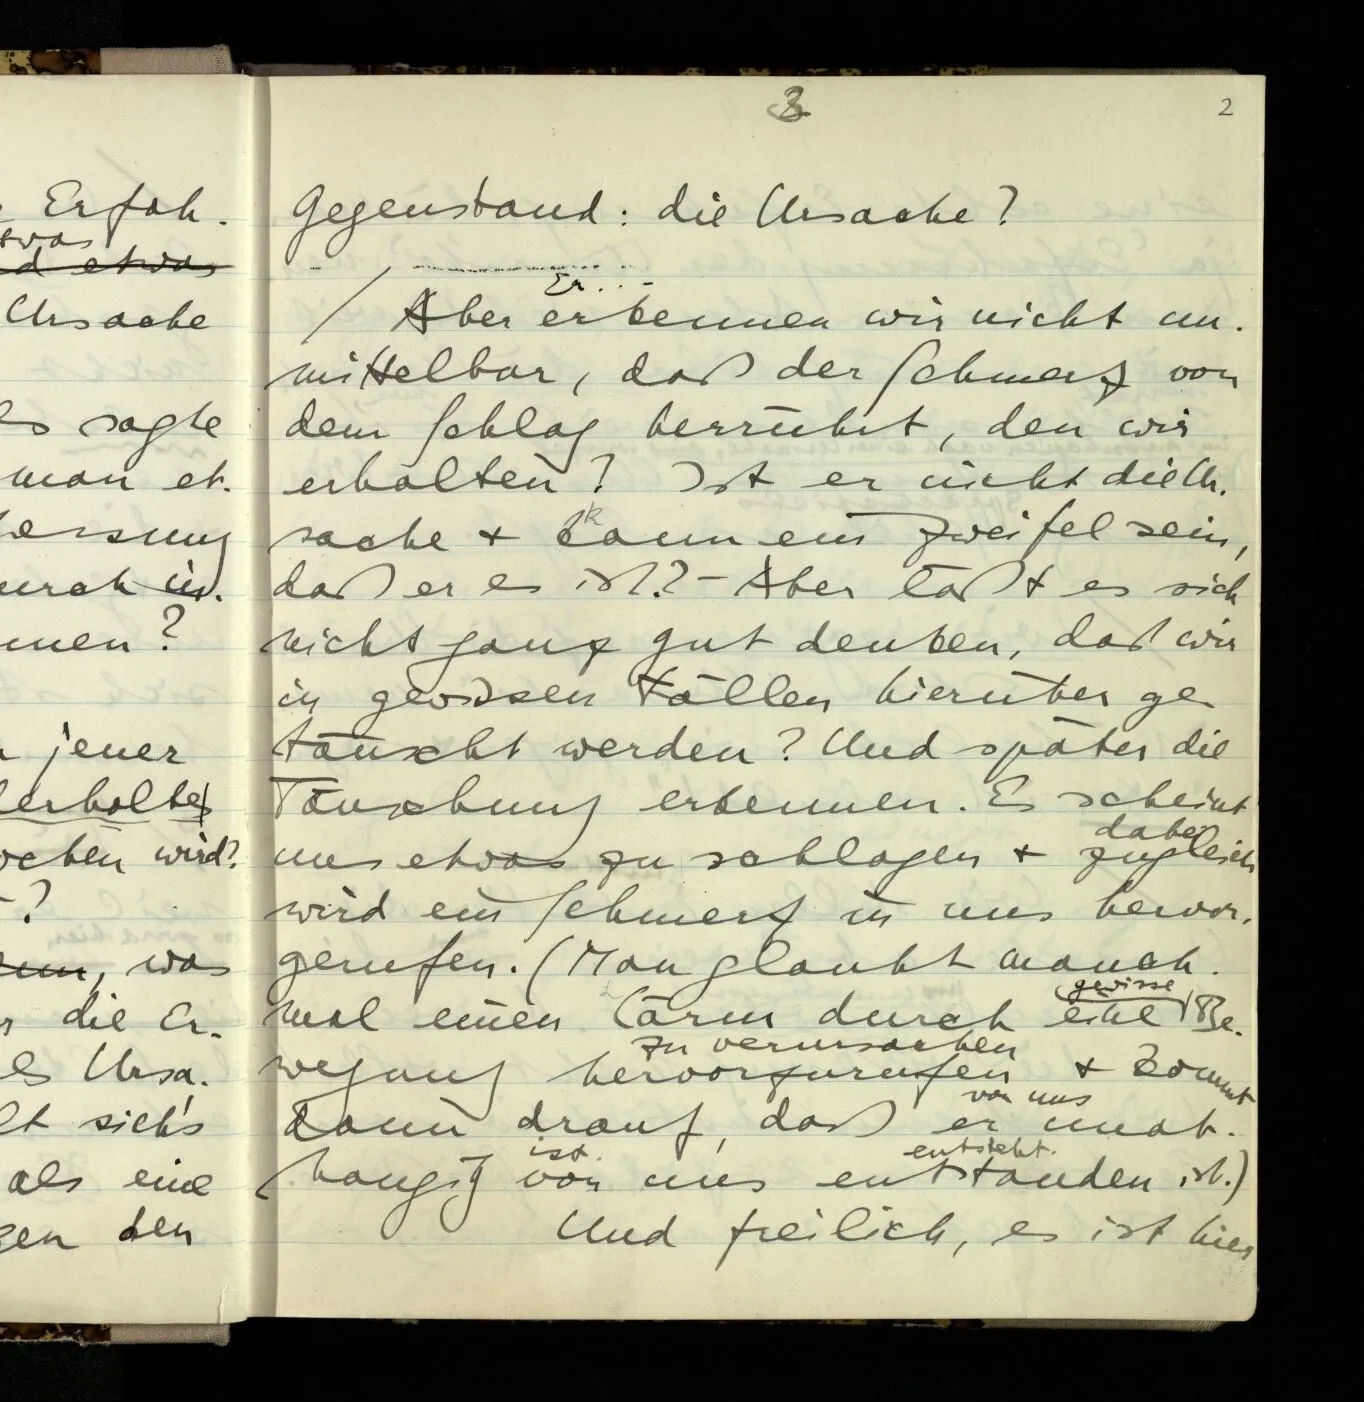 Erfah-
etwas
d etwas
Ursache
es sagte
man et-
messung
durch in-
nnen?
jener
derholtes
ochen wird?
-?
, was
die Er-
es Ursa-
lt sich's
als eine
gen den
3
2
Gegenstand: die Ursache?
Er...
/ Aber erkennen wir nicht un-
mittelbar, daß der Schmerz von
dem Schlag herrührt, den wir
erhalten? Ist er nicht die Ur-
k
sache + kann ein Zweifel sein,
daß er es ist? – Aber läßt es sich
nicht ganz gut denken, daß wir
in gewissen Fällen hierüber ge
täuscht werden? Und später die
Täuschung erkennen. Es scheint
dabei
uns etwas zu schlagen + zugleich
wird ein Schmerz in uns hervor-
gerufen. (Man glaubt manch-
gewisse
mal einen Lärm durch eine Be-
zu verursachen
wegung hervorzurufen + kommt
von uns
dann drauf, daß er unab-
ist. entsteht.
hängig von uns entstanden ist.)
Und freilich, es ist hier